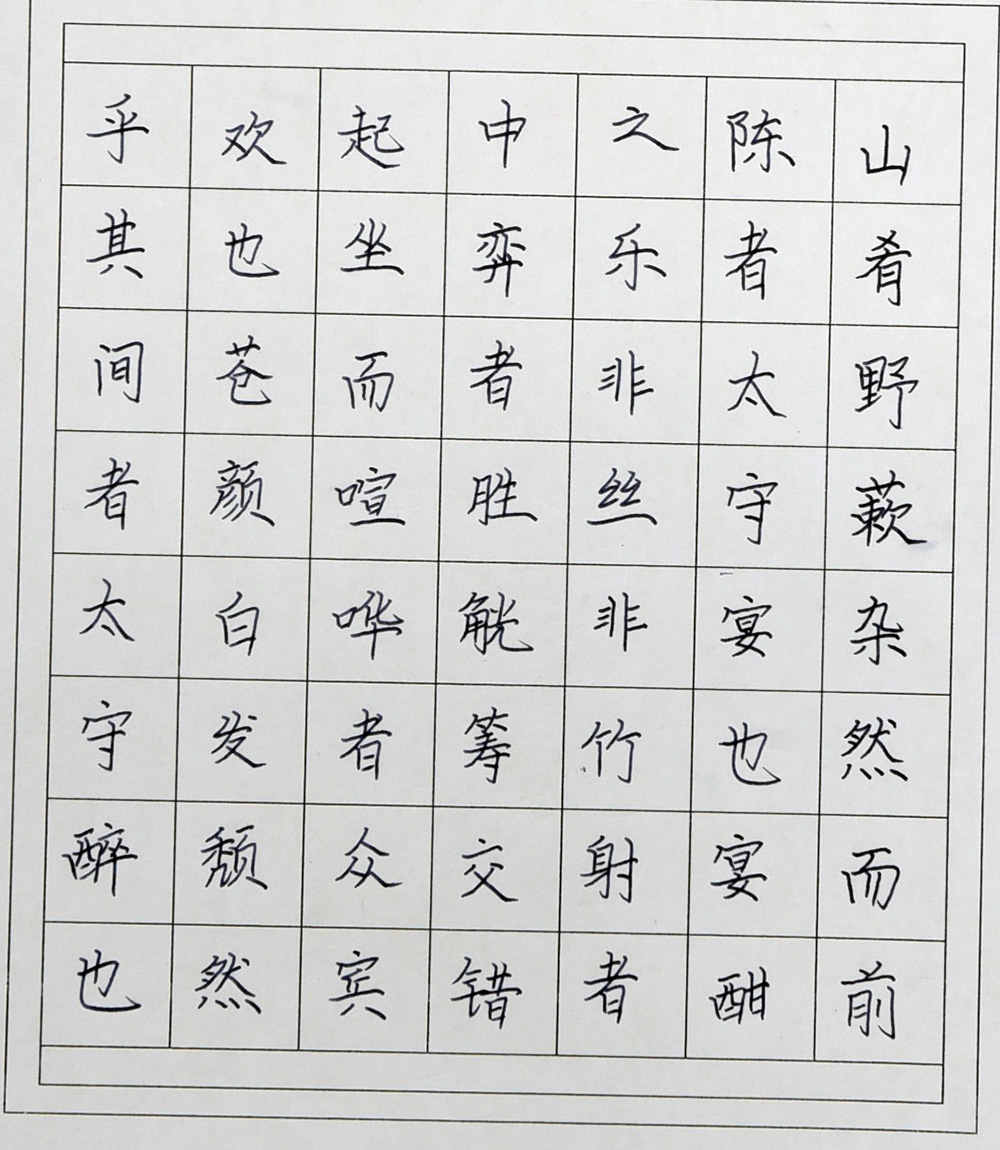 山肴野蔌杂然而前
陈者太守宴也宴酣
之乐非丝非竹射者
中弈者胜觥筹交错
起坐而喧哗者众宾
欢也苍颜白发颓然
乎其间者太守醉也